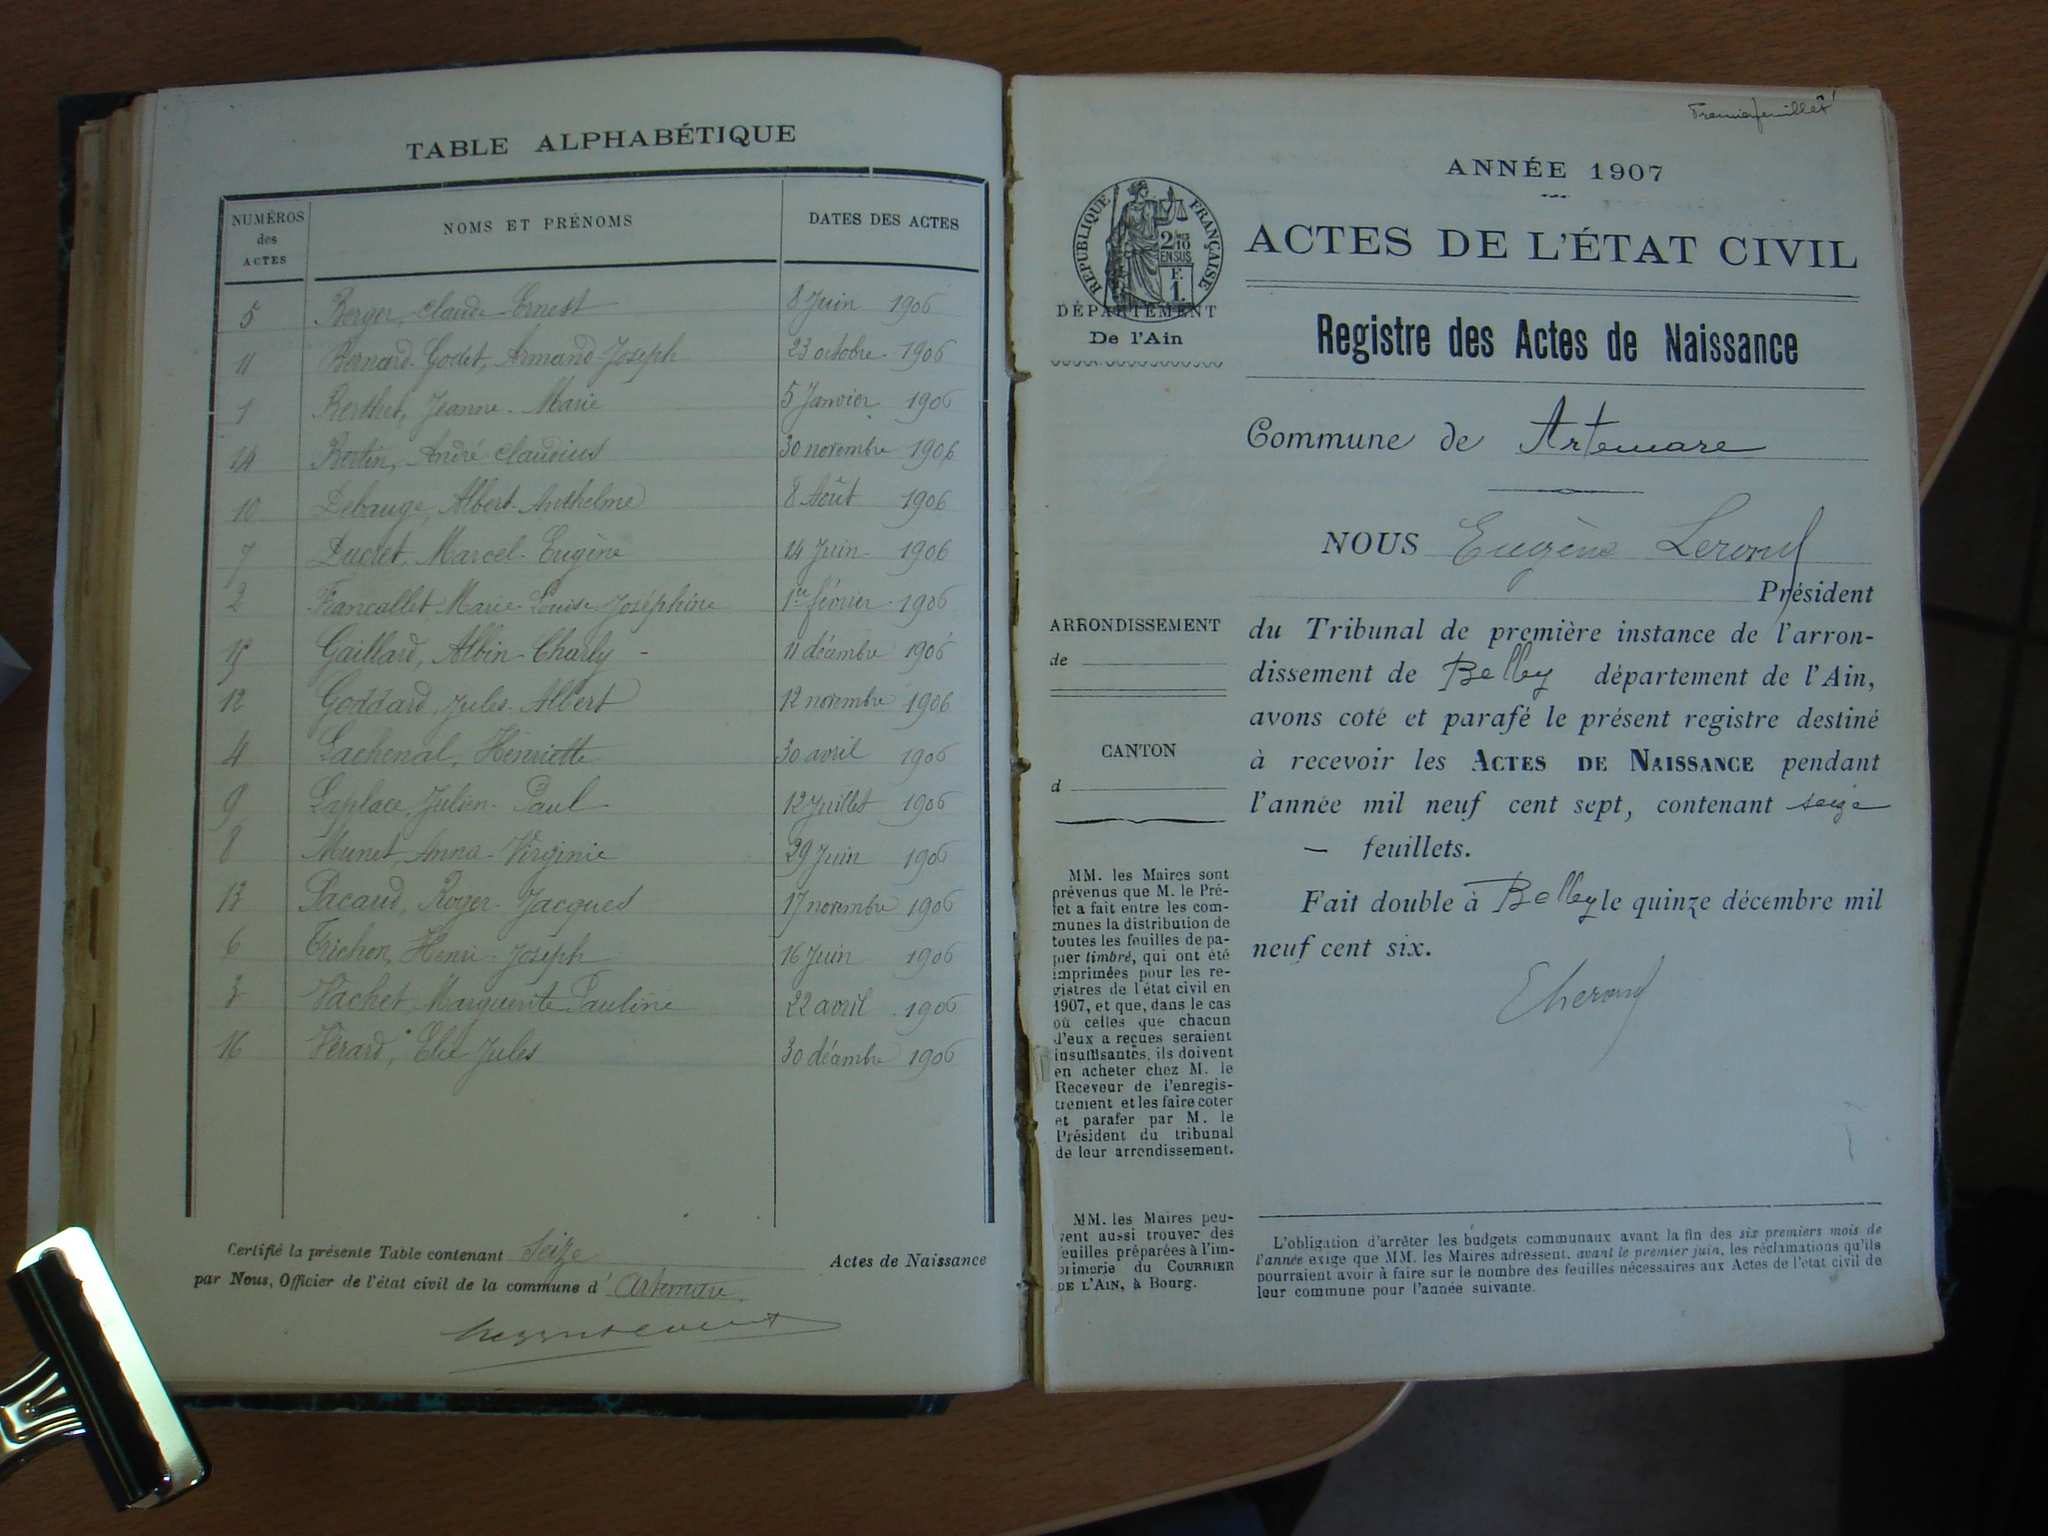 TABLE ALPHABÉTIQUE
NUMÉROS des ACTES NOMS ET PRÉNOMS DATES DES ACTES
5 Berger, Claude Ernest 8 Juin 1906
11 Bernard-Godet, Armand Joseph 23 octobre 1906
1 Berthet, Jeanne-Marie 5 Janvier 1906
14 Bertin, André Claudius 30 novembre 1906
10 Debauge, Albert-Anthelme 8 Août 1906
7 Ducret, Marcel-Eugène 14 Juin 1906
2 Francallet, Marie-Louise Joséphine 1er février 1906
15 Gaillard, Albin-Charly - 11 décembre 1906
12 Goddard, Jules-Albert 12 novembre 1906
4 Lachenal, Henriette 30 avril 1906
9 Laplace, Julien-Paul 12 Juillet 1906
8 Munet, Anna-Virginie 29 Juin 1906
13 Pacaud, Roger-Jacques 17 novembre 1906
6 Trichon, Henri-Joseph 16 Juin 1906
3 Vachet, Marguerite Pauline 22 avril 1906
16 Vérard, Elie Jules 30 décembre 1906
Certifié la présente Table contenant Seize Actes de Naissance
par Nous, Officier de l'état civil de la commune d' Artemare
Premier feuillet
ANNÉE 1907
RÉPUBLIQUE FRANÇAISE
2/10 EN SUS
F. 1.
ACTES DE L'ÉTAT CIVIL
DÉPARTEMENT
De l'Ain
Registre des Actes de Naissance
Commune de Artemare
NOUS Eugène Lerond
Président
ARRONDISSEMENT
de
CANTON
d
du Tribunal de première instance de l'arron-
dissement de Belley département de l'Ain,
avons coté et parafé le présent registre destiné
à recevoir les ACTES DE NAISSANCE pendant
l'année mil neuf cent sept, contenant seize
— feuillets.
Fait double à Belley le quinze décembre mil
neuf cent six.
MM. les Maires sont
prévenus que M. le Pré-
fet a fait entre les com-
munes la distribution de
toutes les feuilles de pa-
pier timbré, qui ont été
imprimées pour les re-
gistres de l'état civil en
1907, et que, dans le cas
où celles que chacun
d'eux a reçues seraient
insuffisantes, ils doivent
en acheter chez M. le
Receveur de l'enregis-
trement et les faire coter
et parafer par M. le
Président du tribunal
de leur arrondissement.
MM. les Maires peu-
vent aussi trouver des
feuilles préparées à l'im-
primerie du COURRIER
DE L'AIN, à Bourg.
L'obligation d'arrêter les budgets communaux avant la fin des six premiers mois de
l'année exige que MM. les Maires adressent, avant le premier juin, les réclamations qu'ils
pourraient avoir à faire sur le nombre des feuilles nécessaires aux Actes de l'état civil de
leur commune pour l'année suivante.